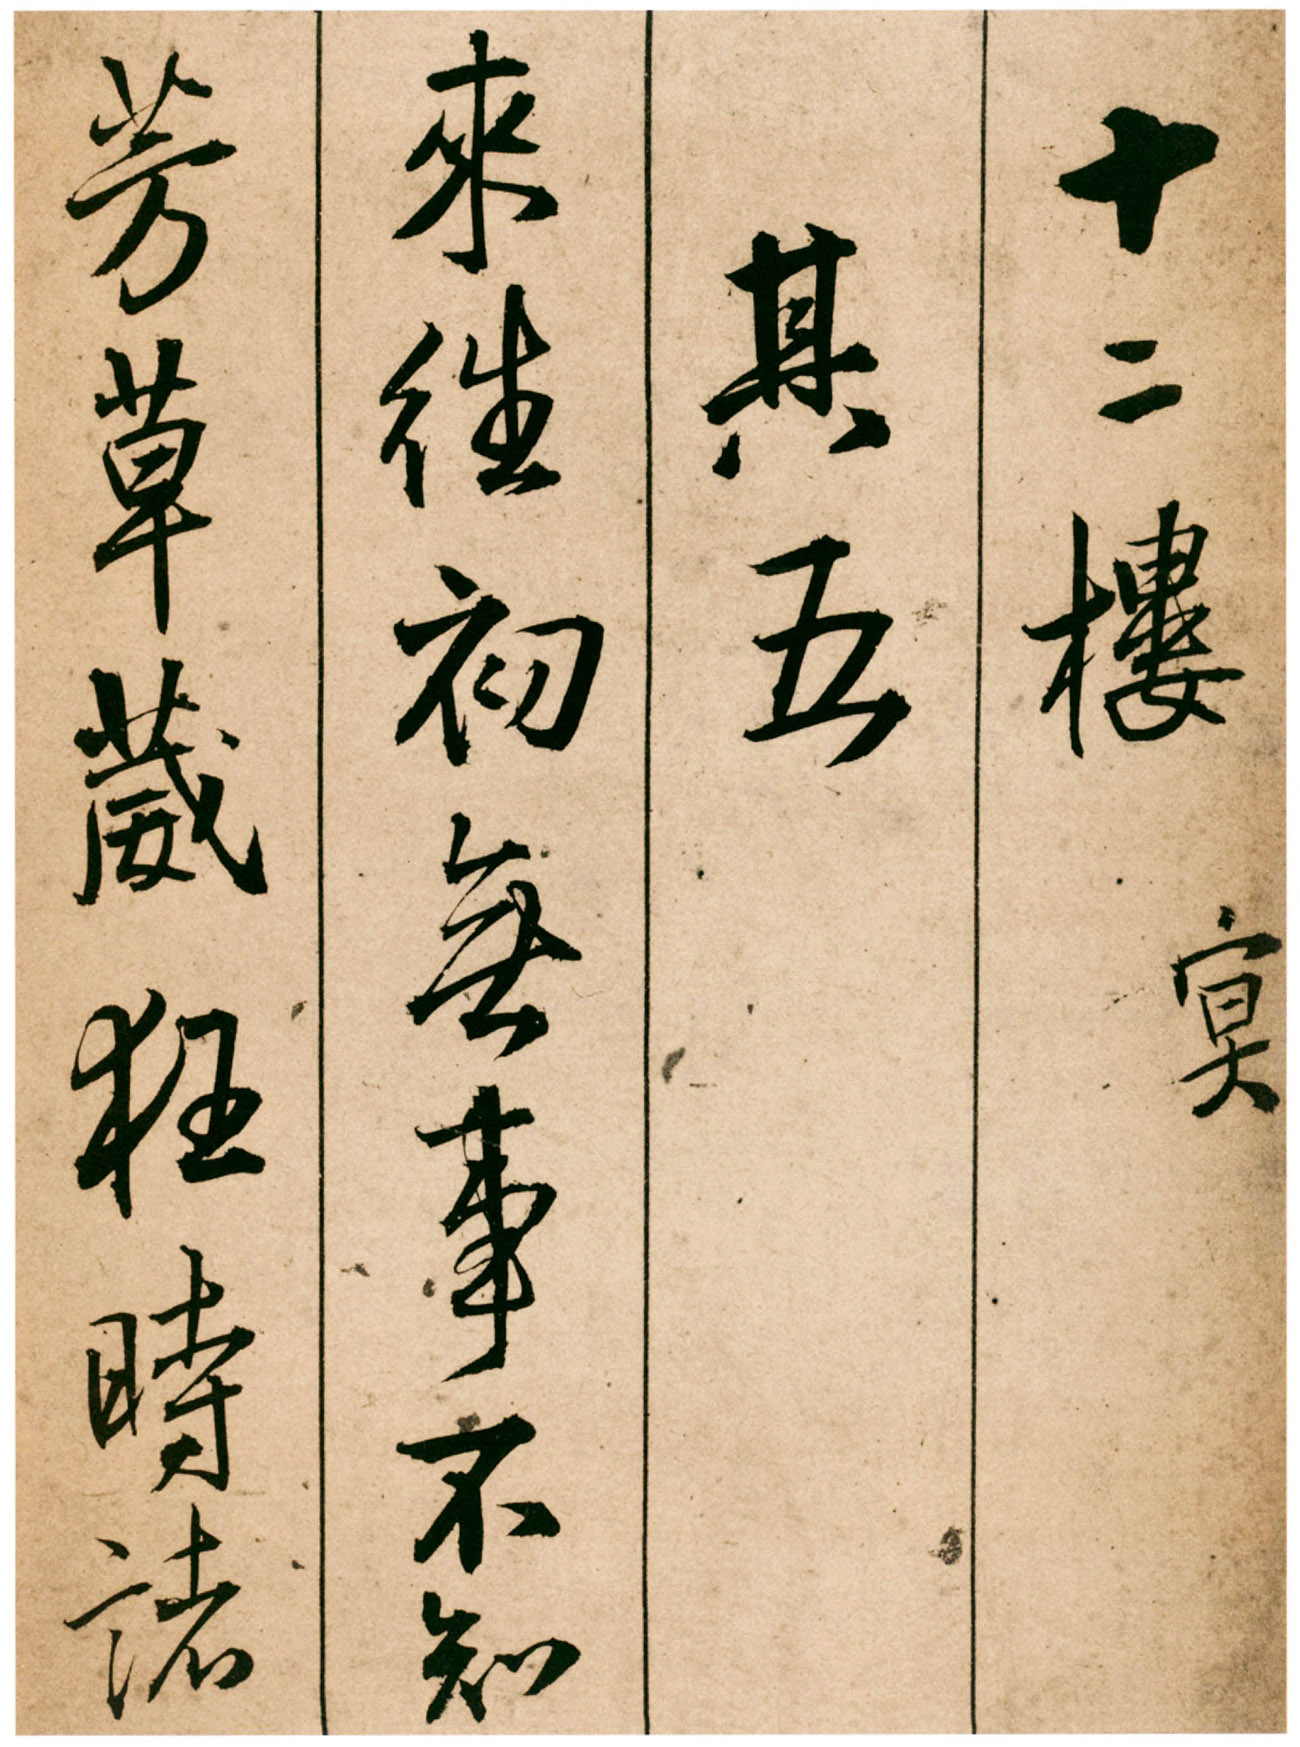 十二樓 冥
其五
來往初無事不知
芳草葳狂時諸